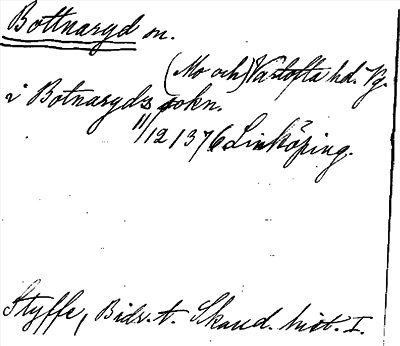 Bottnaryd sn.
(Mo och) Vartofta hd. Vg.
i Botnaryds sokn.
11/12 1376 Linköping.
Styffe, Bidr. t. Skand. hist. I.